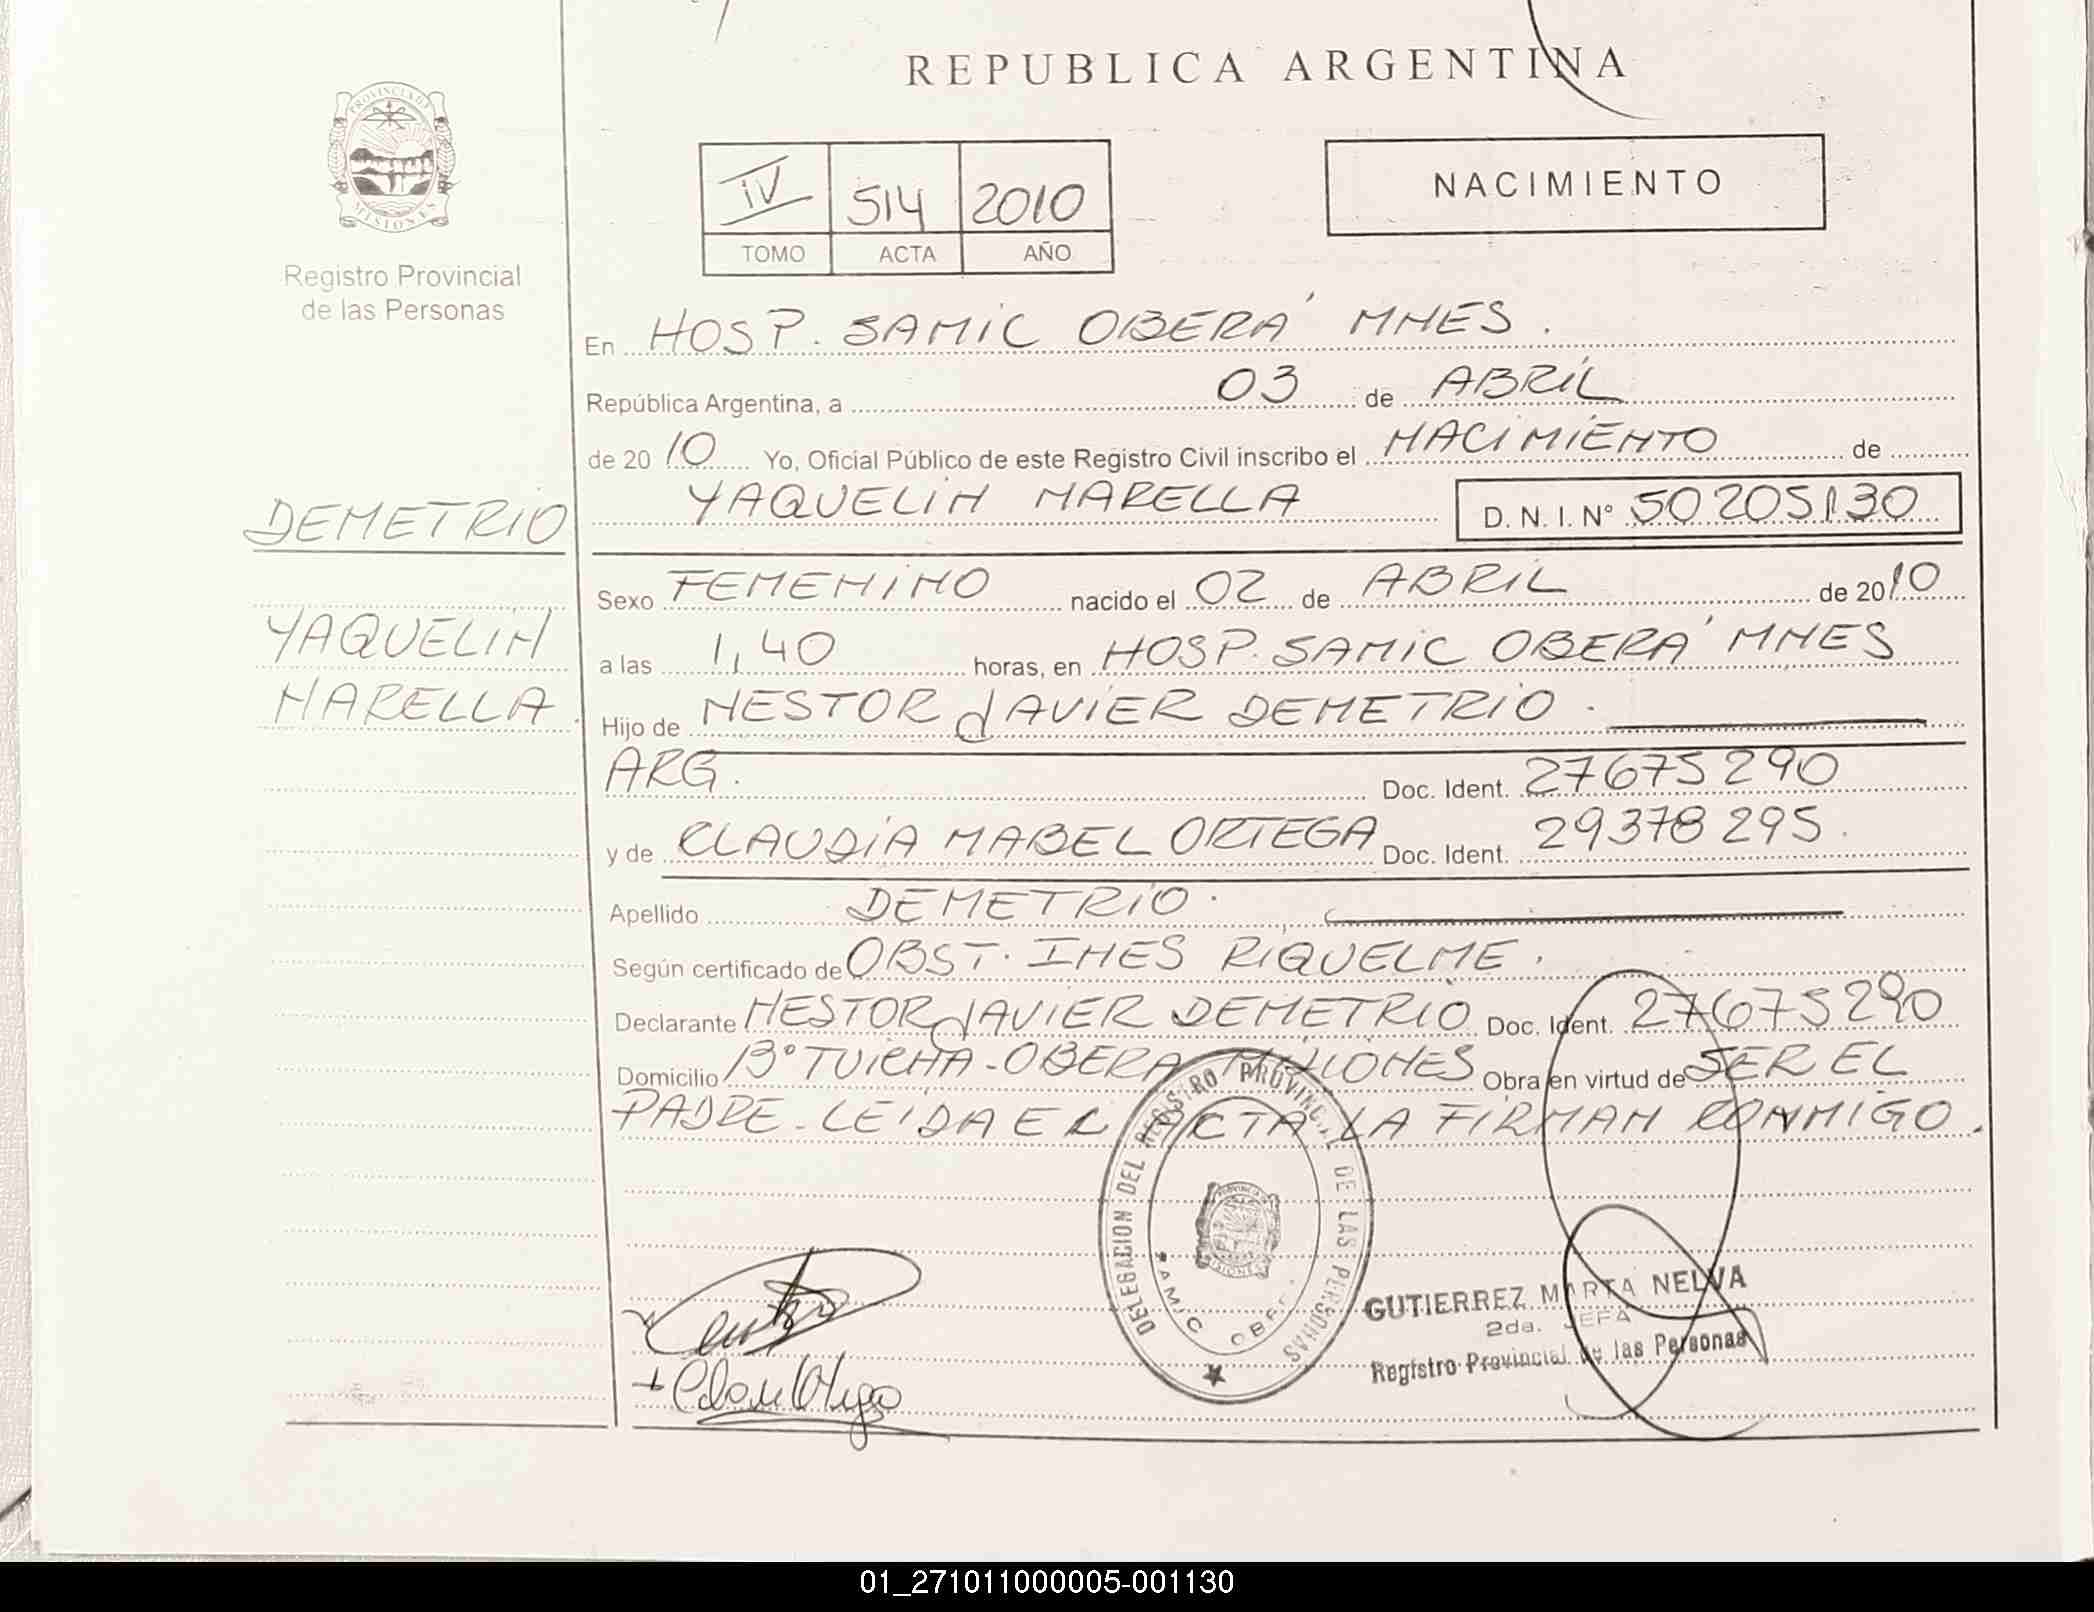 REPUBLICA ARGENTINA
PROVINCIA DE MISIONES
Registro Provincial
de las Personas
IV 514 2010
TOMO ACTA AÑO
NACIMIENTO
En HOSP. SAMIC OBERÁ MNES.
República Argentina, a 03 de ABRIL
de 2010 Yo, Oficial Público de este Registro Civil inscribo el NACIMIENTO de
YAQUELIN MARELLA D. N. I. Nº 50205130
DEMETRIO
YAQUELIN
MARELLA.
Sexo FEMENINO nacido el 02 de ABRIL de 2010
a las 1,40 horas, en HOSP. SAMIC OBERÁ MNES
Hijo de NESTOR JAVIER DEMETRIO.
ARG. Doc. Ident. 27675290
y de CLAUDIA MABEL ORTEGA Doc. Ident. 29378295.
Apellido DEMETRIO.
Según certificado de OBST. INES RIQUELME.
Declarante NESTOR JAVIER DEMETRIO Doc. Ident. 27675290
Domicilio Bº TUICHA - OBERA MISIONES Obra en virtud de SER EL
PADRE. LEIDA EL ACTA LA FIRMAN CONMIGO.
DELEGACION DEL REGISTRO PROVINCIAL DE LAS PERSONAS
SAMIC OBERA
GUTIERREZ MARTA NELVA
2da. JEFA
Registro Provincial de las Personas
01_271011000005-001130